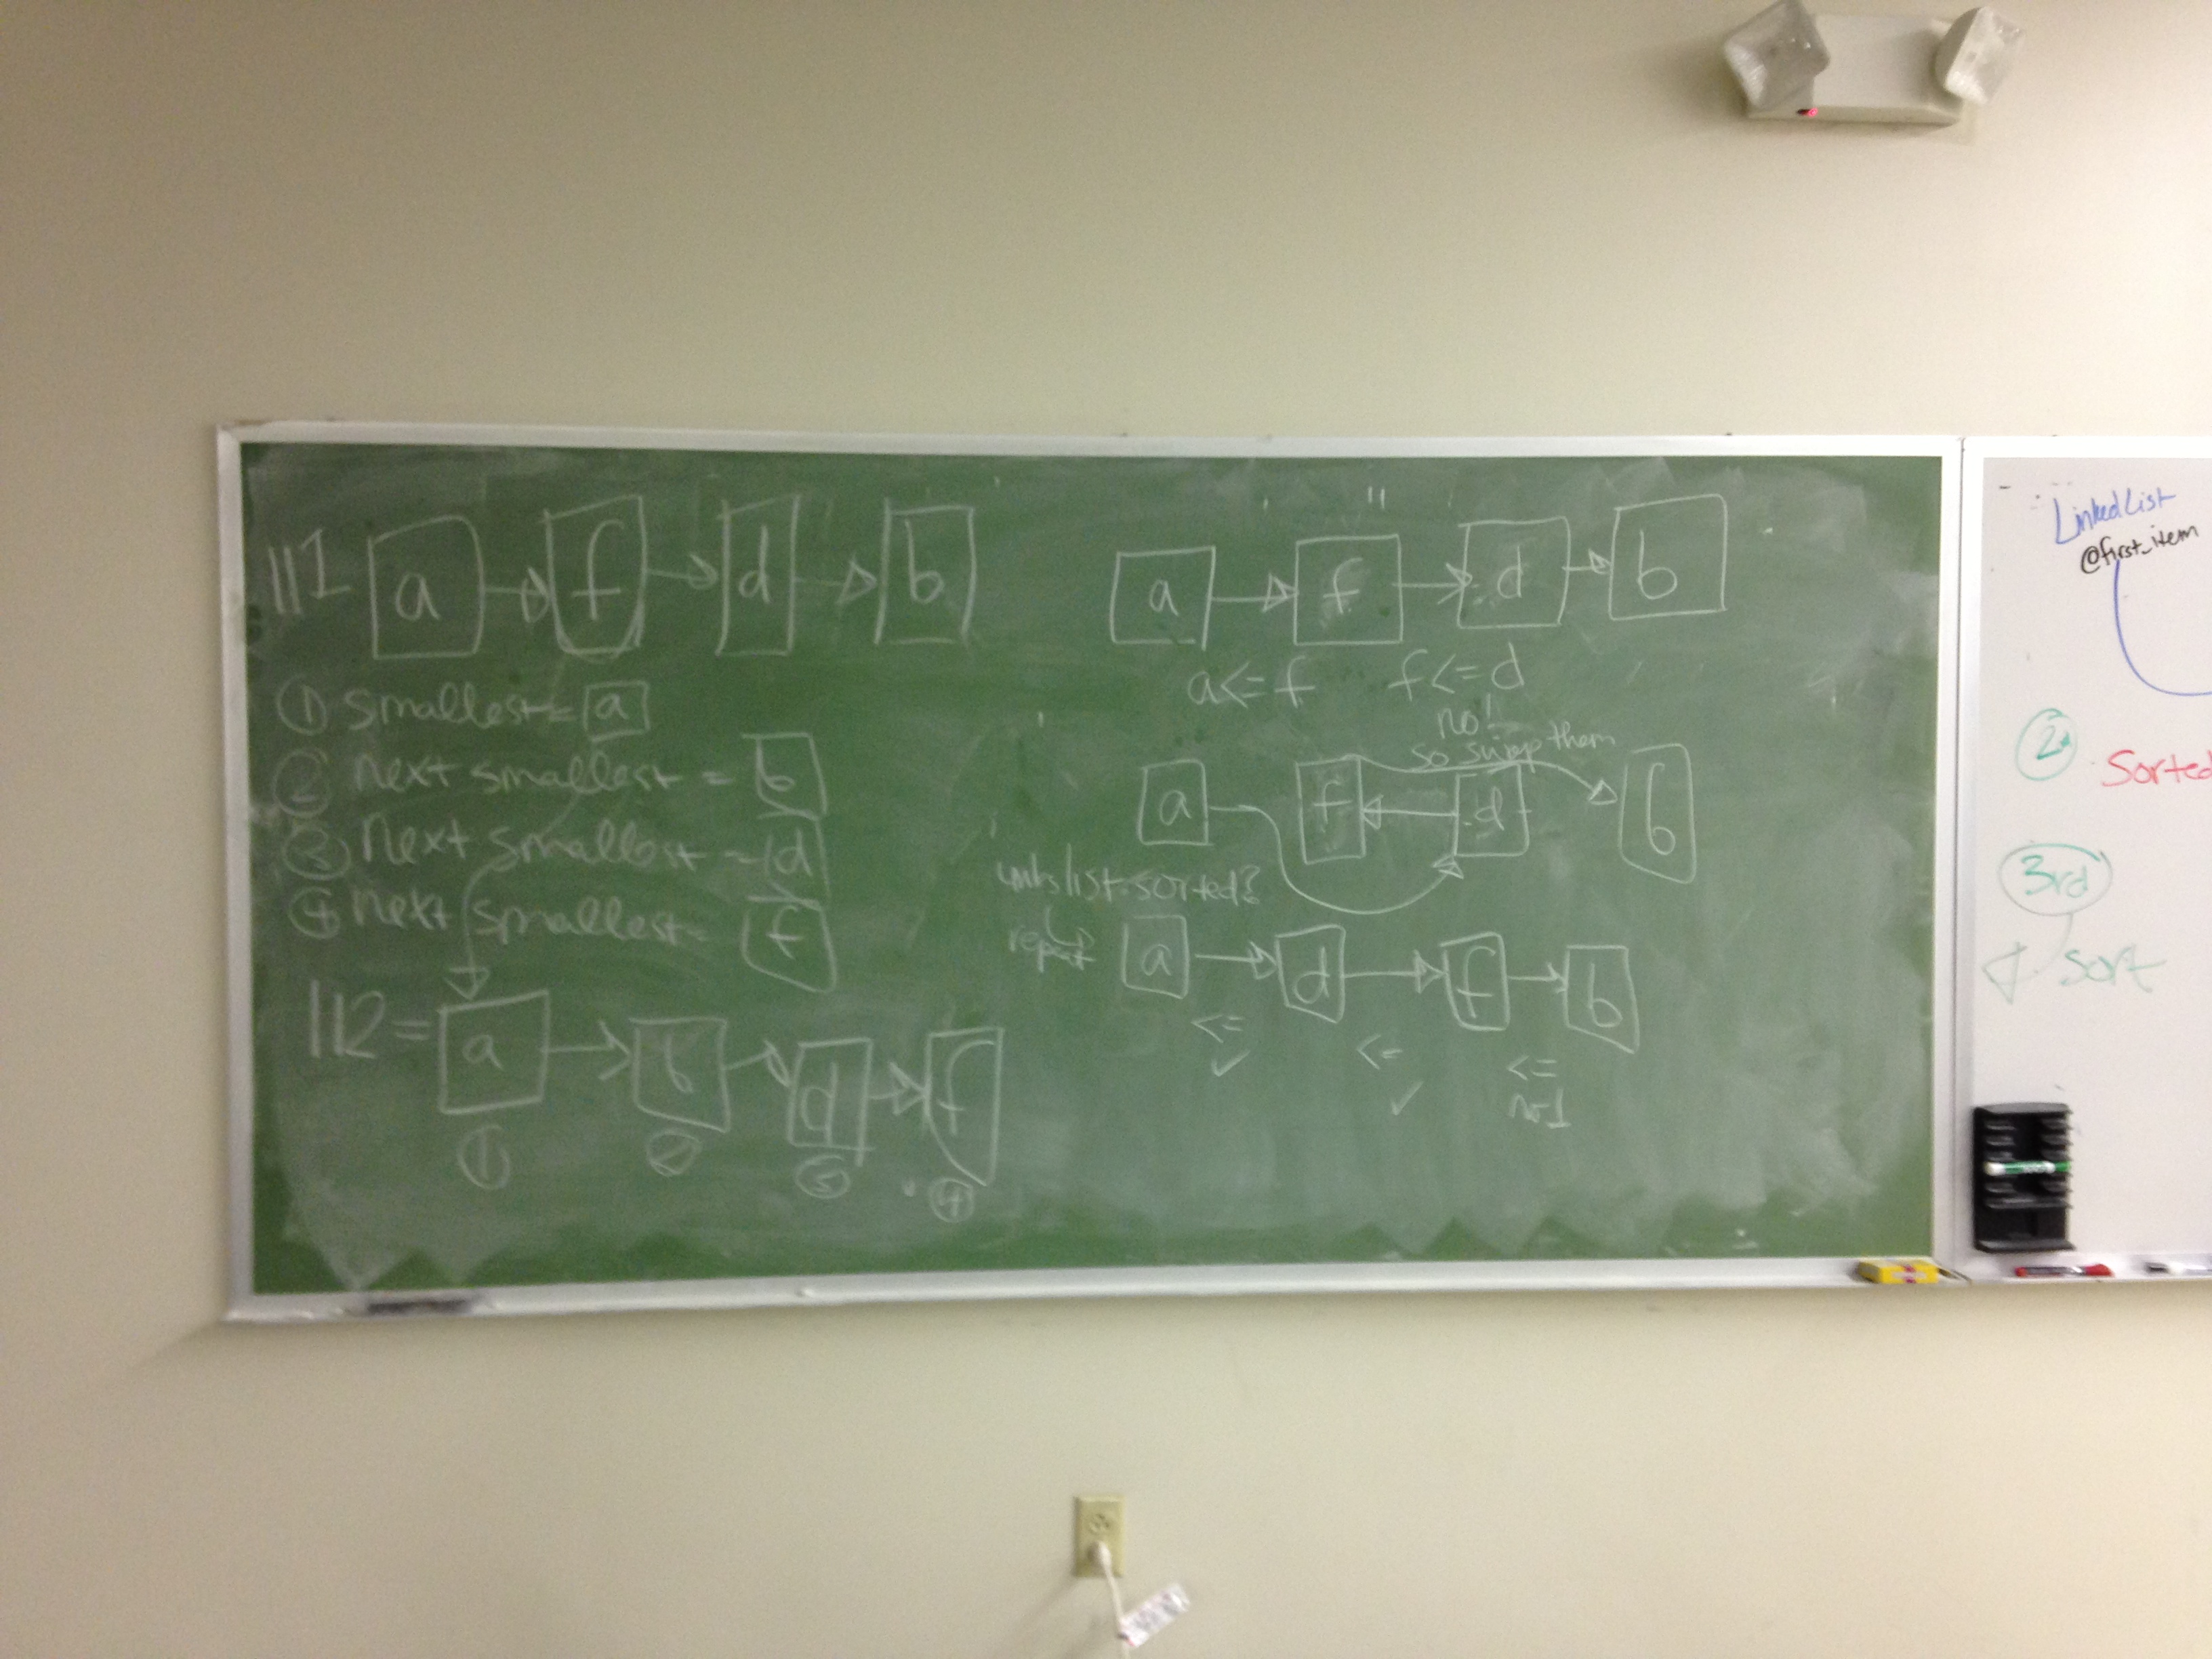 ll1 a f d b
① smallest = a
② next smallest = b
③ next smallest = d
④ next smallest = f
ll2 = a b d f
① ② ③ ④
a f d b
a <= f f <= d
no!
so swap them
a f d b
list sorted?
repeat
a d f b
<= <= <=
✓ ✓
LinkedList
@first_item
2
Sorted
3rd
sort